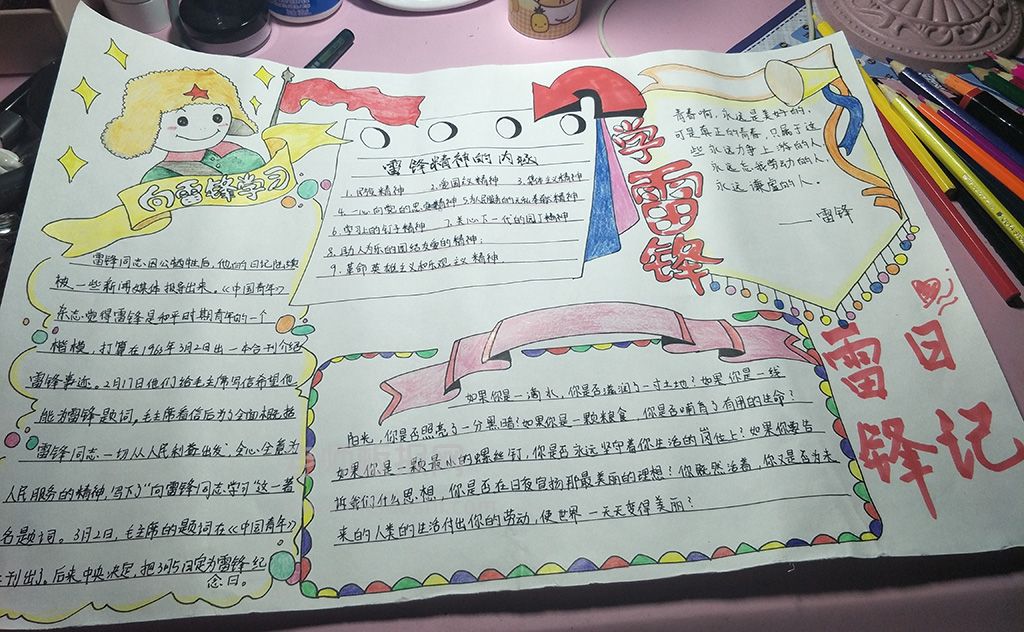 向雷锋学习
雷锋同志因公牺牲后,他的日记陆续
被一些新闻媒体报导出来。《中国青年》
杂志觉得雷锋是和平时期青年的一个
楷模,打算在1963年3月2日出一本合刊介绍
雷锋事迹。2月17日他们给毛主席写信希望他
能为雷锋题词。毛主席看信后为了全面概括
雷锋同志一切从人民利益出发,全心全意为
人民服务的精神,写下了“向雷锋同志学习”这一著
名题词。3月2日,毛主席的题词在《中国青年》
刊出了。后来中央决定,把3月5日定为雷锋纪
念日。
雷锋精神的内
1.民族精神 2.爱国主义精神 3.集体主义精神
4.一心向党的思想精神 5.为人民服务的无私奉献精神
6.学习上的钉子精神 7.关心下一代的园丁精神
8.助人为乐的团结友爱的精神;
9.革命英雄主义和乐观主义精神;
学
雷
锋
青春啊,永远是美好的,
可是真正的青春,只属于这
些永远力争上游的人,
永远忘我劳动的人,
永远谦虚的人。
——雷锋
如果你是一滴水,你是否滋润了一寸土地?如果你是一线
阳光,你是否照亮了一分黑暗?如果你是一颗粮食,你是否哺育了有用的生命?
如果你是一颗最小的螺丝钉,你是否永远坚守着你生活的岗位上?如果你要告
诉我们什么思想,你是否在日夜宣扬那最美丽的理想?你既然活着,你又是否为未
来的人类的生活付出你的劳动,使世界一天天变得美丽?
雷锋
日记